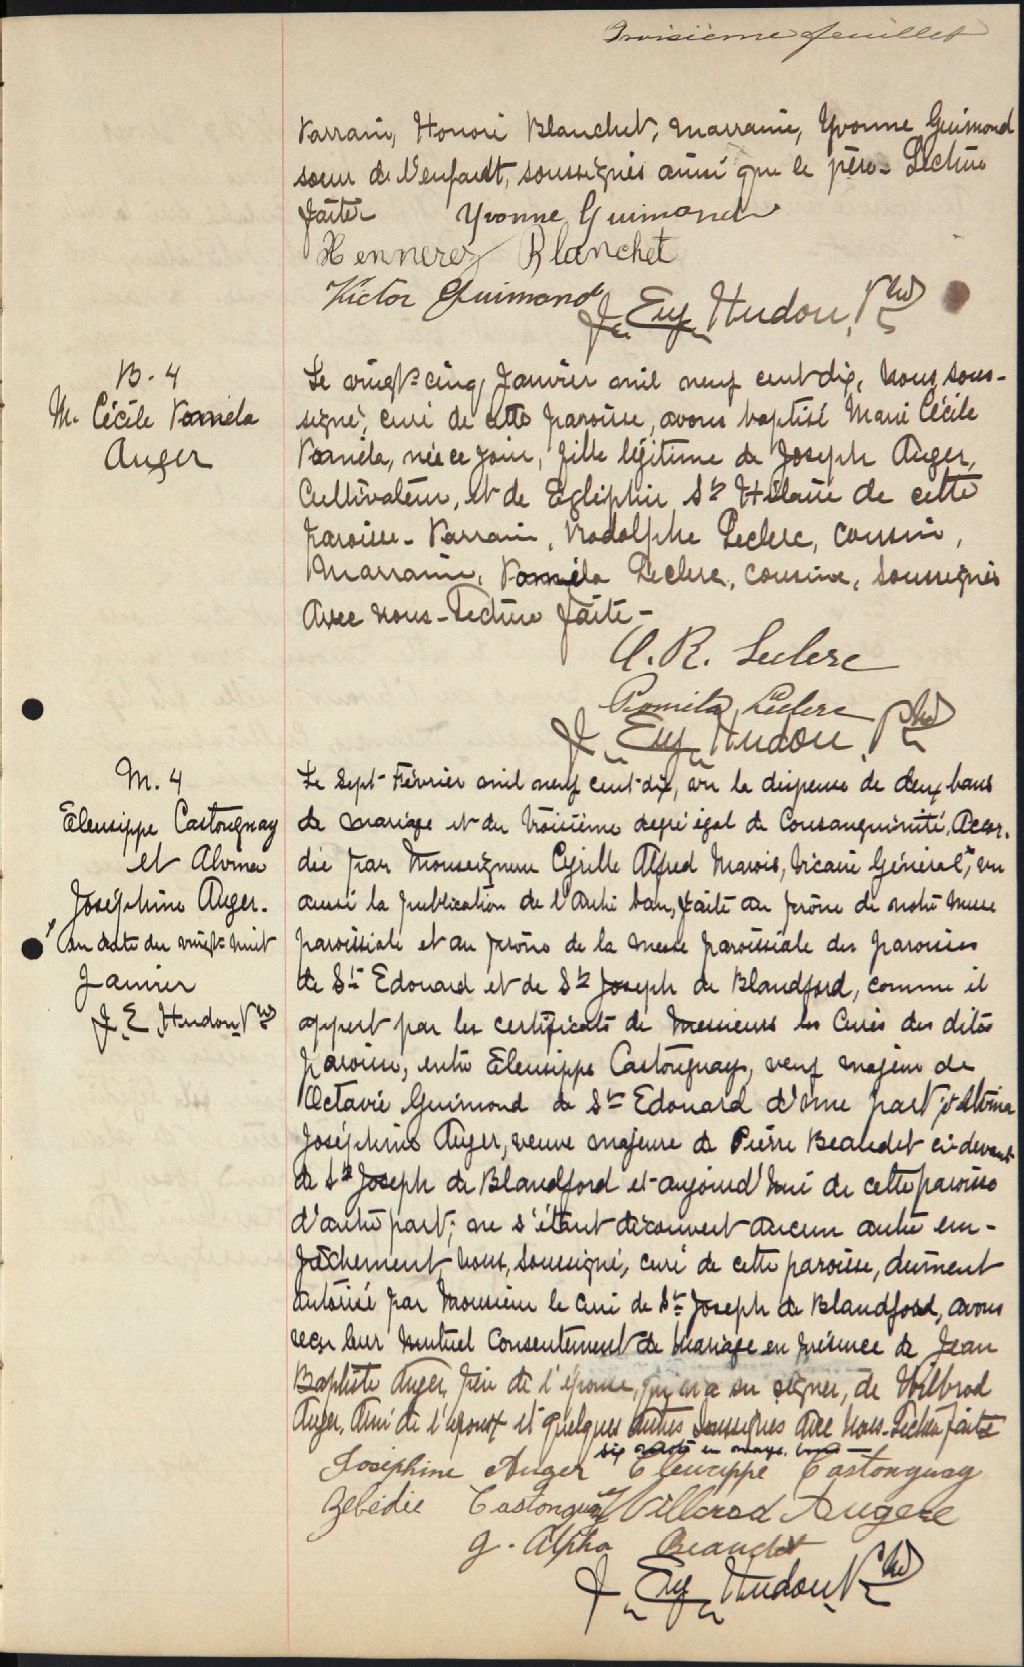 Troisième feuillet
Parrain, Honoré Blanchet, marraine, Yvonne Guimond
soeur de l'enfant, soussignés ainsi que le père. Lecture
faite. Yvonne Guimond
Hennerez Blanchet
Victor Guimond
J. Eug. Hudon, Ptre
B. 4
M. Cécile Paméla
Auger
Le vingt-cinq Janvier mil neuf cent dix, Nous, sous-
signé, curé de cette paroisse, avons baptisé Marie Cécile
Paméla, née ce jour, fille légitime de Joseph Auger,
Cultivateur, et de St Hilaire de cette
paroisse. Parrain, Rodolphe Leclerc, cousin,
Marraine, Paméla Leclerc, cousine, soussignés
avec nous. Lecture faite.
A. R. Leclerc
Leclerc
J. Eug. Hudon, Ptre
M. 4
Eleusippe Castonguay
et Alvina
Joséphine Auger.
* en date du vingt huit
Janvier
J. E. Hudon Ptre
Le sept Février mil neuf cent dix, vu la dispense de deux bans
de mariage et du troisième degré égal de Consanguinité, accor-
dée par Monseigneur Cyrille Alfred Marois, Vicaire Général*, vu
aussi la publication de l'autre ban, faite au prône de notre messe
paroissiale et au prône de la messe paroissiale des paroisses
de St Edouard et de St Joseph de Blandford, comme il
appert par les certificats de Messieurs les Curés des dites
paroisses, entre Eleusippe Castonguay, veuf majeur de
Octavie Guimond de St Edouard d'une part, et Alvina
Joséphine Auger, veuve majeure de Pierre Beaudet ci-devant
de St Joseph de Blandford et aujourd'hui de cette paroisse
d'autre part; ne s'étant découvert aucun autre em-
pêchement, Nous, soussigné, curé de cette paroisse, dûment
autorisé par Monsieur le Curé de St Joseph de Blandford, avons
reçu leur mutuel Consentement de Mariage en présence de Jean
Baptiste Auger, père de l'épouse, qui n'a su signer, de Wilbrod
Auger, ami de l'époux et quelques autres soussignés avec nous. Lecture faite
six mots en marge. bons
Joséphine Auger Eleusippe Castonguay
Zébédie Castonguay Villbrod Augere
G. Alpha Beaudet
J. Eug. Hudon, Ptre